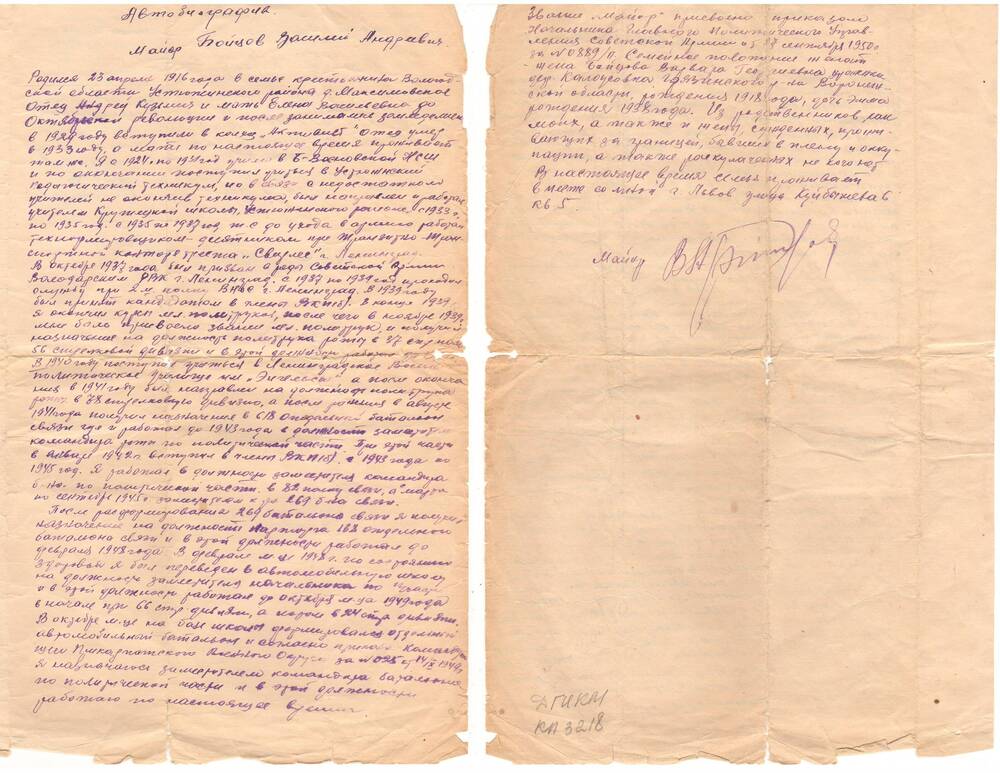 Автобиография.
Майор Бойцов Василий Андреевич.
Родился 23 апреля 1916 года в семье крестьянина Вологод-
ской области Устюжинского района д. Максимовское
Отец Андрей Кузьмич и мать Елена Васильевна до
Октябрьской революции и после занимались земледелием
в 1929 году вступили в колхоз „Активист" Отец умер
в 1933 году, а мать по настоящее время проживает
там же. Я с 1924 по 1931 год учился в НСШ
и по окончании поступил учиться в Устюжинский
Педагогический техникум, но в связи с недостатком
учителей не окончив техникума, был направлен и работал
учителем школы, Устюжинского района с 1933 г.
по 1935 год. с 1935 по 1937 год ж-с до ухода в армию работал
техником-нормировщиком-десятником при транзитно-тран-
спортной конторе треста „Свирлес" г. Ленинград.
В октябре 1937 года был призван в ряды Советской Армии
Володарским РВК г. Ленинград. с 1937 по 1939 год проходил
службу при 2-м полку ВНОС г. Ленинград. В 1939 году
был принят кандидатом в члены ВКП(б). В конце 1939 г.
я окончил курсы мл. политруков, после чего в ноябре 1939 г.
мне было присвоено звание мл. политрук, и получил
назначение на должность политрука роты в 37 стр. полк
56 стрелковой дивизии и в этой должности работал до
В 1940 году поступил учиться в Ленинградское Военно-
политическое училище им „Энгельса", а после оконча-
ния в 1941 году был направлен на должность политрука
роты в 78 стрелковую дивизию, а после ранения в августе
1941 года получил назначение в 618 отдельный батальон
связи где и работал до 1943 года в должности заместителя
командира роты по политической части. При этой части
в 1942 г. вступил в члены ВКП(б). с 1943 года по
1945 год. Я работал в должности заместителя командира
б-на по политической части. в 82 полку связи, с марта
по сентябрь 1945 г. заместителем к-ра 269 б-на связи.
После расформирования 269 батальона связи я получил
назначение на должность парторга 188 отдельного
батальона связи и в этой должности работал до
февраля 1948 года. В феврале м-це 1948 г. по состоянию
здоровья я был переведен в автомобильную школу
на должность заместителя начальника по
и в этой должности работал до октября м-ца 1949 года
в начале при 66 стр. дивизии, а потом в 24 стр. дивизии.
В октябре м-це на базе школы формировался отдельный
автомобильный батальон и согласно приказа Командую-
щего Прикарпатского Военного Округа за № 025 от 14/X 1949 г.
я назначался заместителем командира батальона
по политической части и в этой должности
работаю по настоящее время.
Звание „Майор" присвоено приказом
Начальника Главного Политического Управ-
ления Советской Армии от 27 сентября 1950 г.
за № 0889/п. Семейное положение женат
жена Бойцова Варвара Георгиевна урожен.
дер. Калоусовка Грязнского р-на Воронеж-
ской области, рождения 1918 года, дочь Эмма
рождения 1938 года. Из родственников, как
моих, а также и жены, осужденных, прожи-
вающих за границей, бывших в плену и окку-
пации, а также раскулаченных не имеют.
В настоящее время семья проживает
вместе со мной г. Львов улица Куйбышева 6
кв 5.
Майор
ДГИКМ
КП 3218